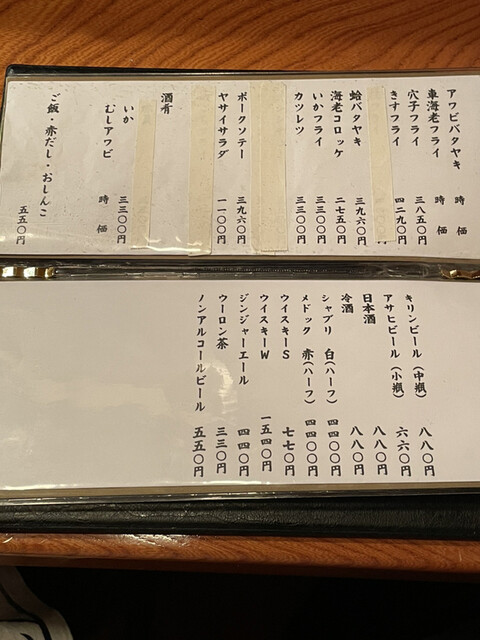 アワビバタヤキ 時価
車海老フライ 時価
穴子フライ 三八五〇円
きすフライ 四二九〇円
蛤バタヤキ 三九六〇円
海老コロッケ 二七五〇円
いかフライ 三三〇〇円
カツレツ 三三〇〇円
ポークソテー 三九六〇円
ヤサイサラダ 一一〇〇円
酒肴
いか 三三〇〇円
むしアワビ 時価
ご飯・赤だし・おしんこ 五五〇円
キリンビール(中瓶) 八八〇円
アサヒビール(小瓶) 六六〇円
日本酒 八八〇円
冷酒 八八〇円
シャブリ 白(ハーフ) 四四〇〇円
メドック 赤(ハーフ) 四四〇〇円
ウイスキーS 七七〇円
ウイスキーW 一五四〇円
ジンジャーエール 四四〇円
ウーロン茶 三三〇円
ノンアルコールビール 五五〇円